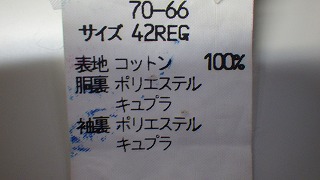 70-66
サイズ 42REG
表地 コットン 100%
胴裏 ポリエステル
キュプラ
袖裏 ポリエステル
キュプラ